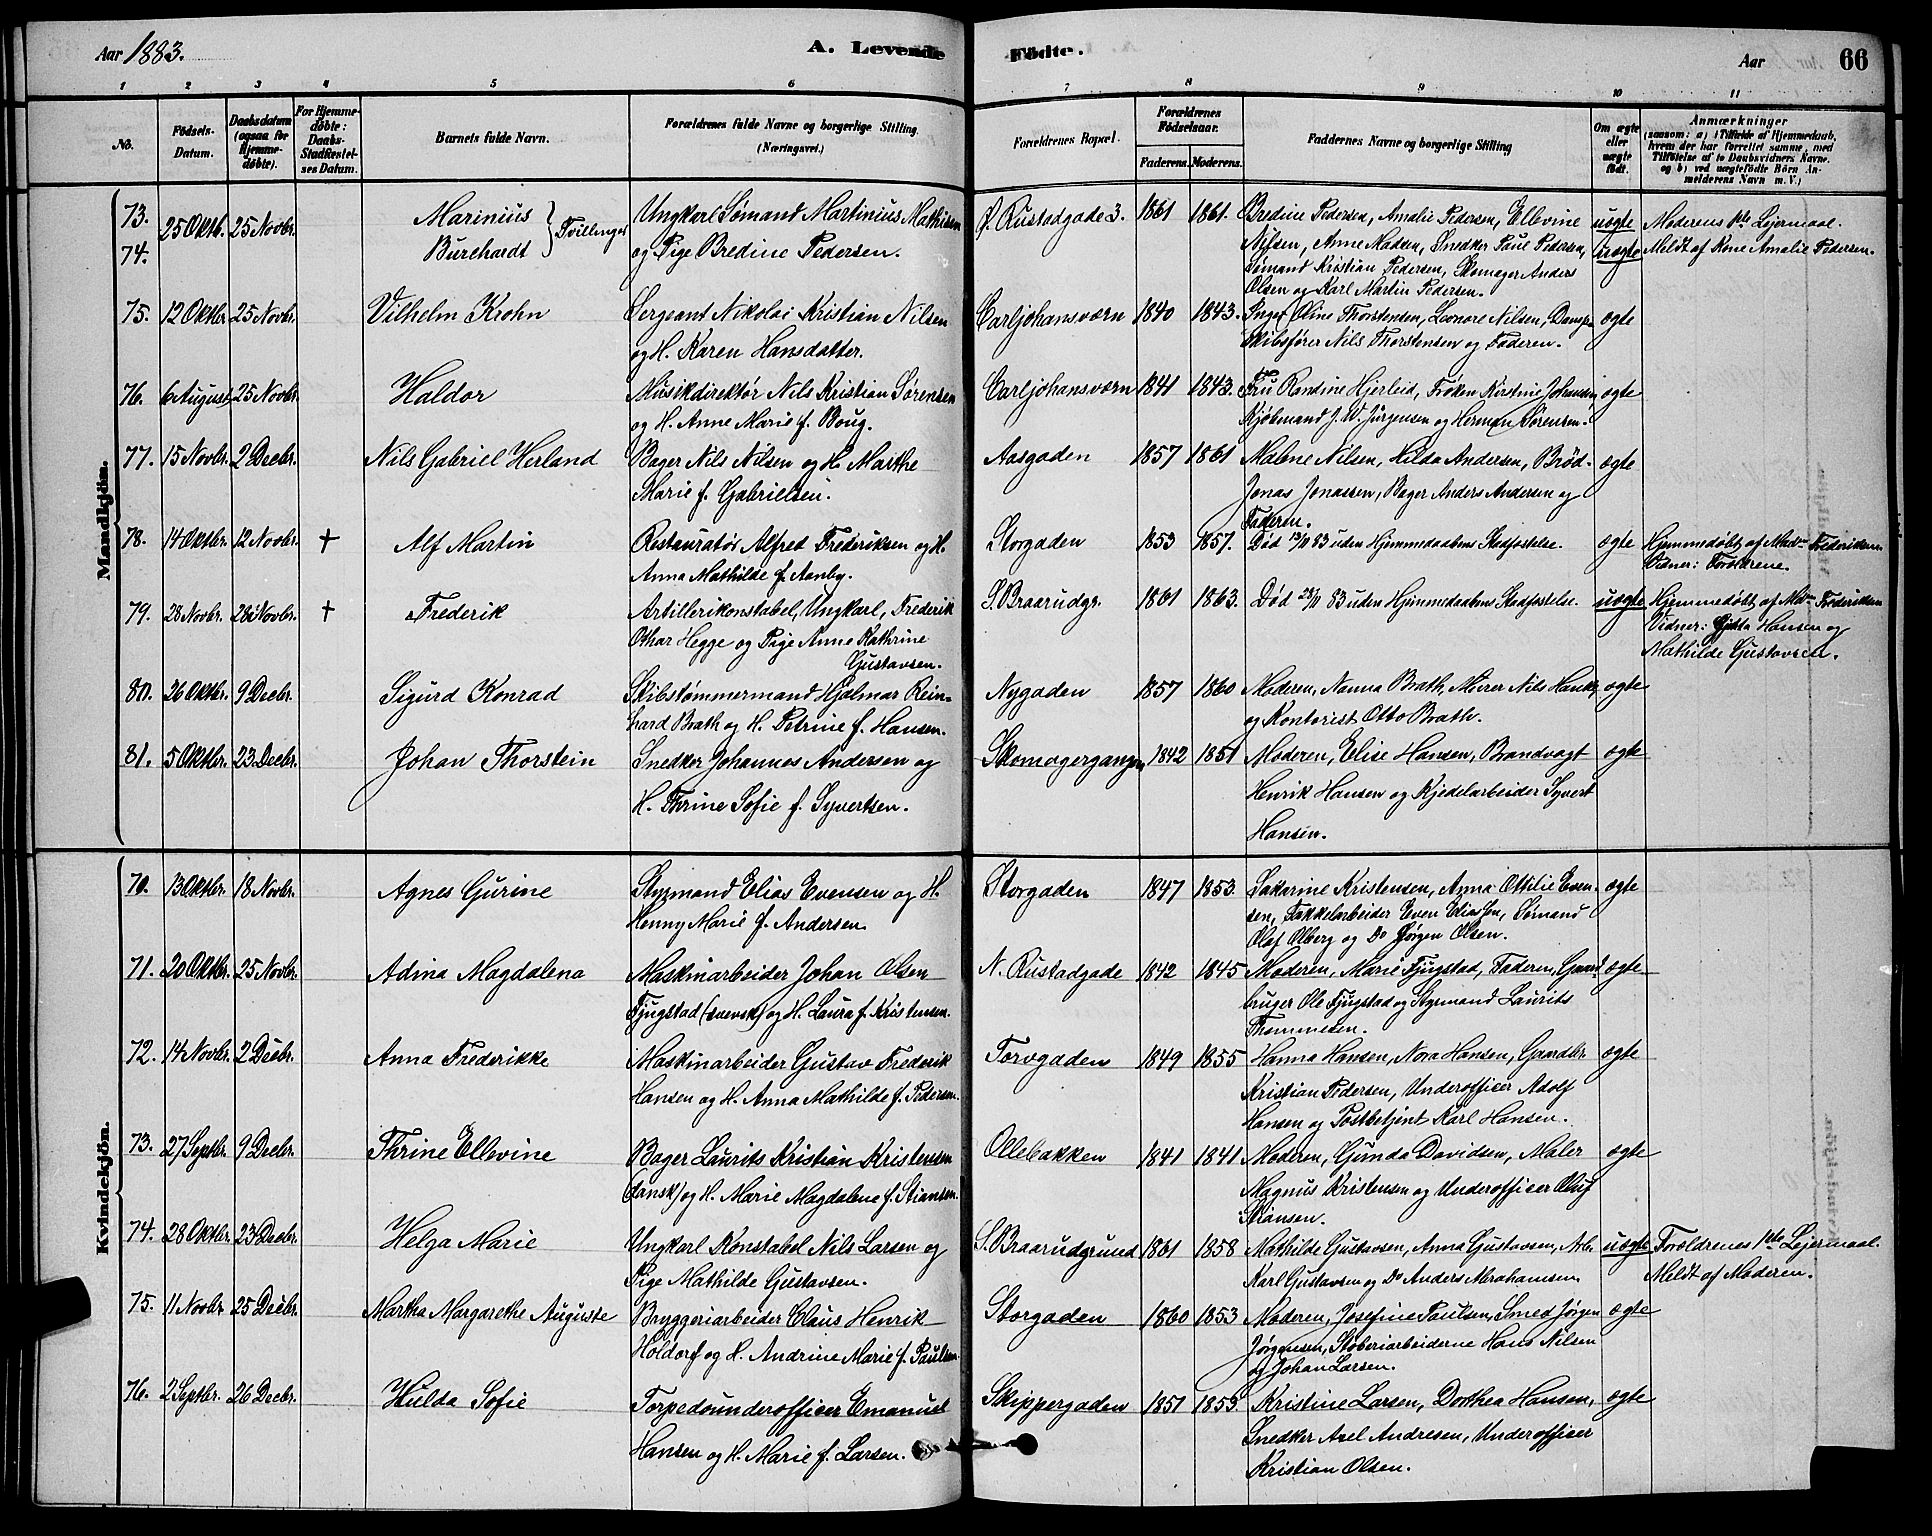 Aar 1883. A. Levende Födte. Aar 66
1 2 3 4 5 6 7 8 9 10 11
No. Födsels-Datum. Daabsdatum (ogsaa for Hjemmedøbte). For Hjemmedøbte: Daabs-Stadfæstelses Datum. Barnets fulde Navn. Forældrenes fulde Navne og borgerlige Stilling. (Næringsvei.) Forældrenes Bopæl. Forældrenes Fødselsaar. Faderens. Moderens. Faddernes Navne og borgerlige Stilling Om ægte eller uægte født. Anmærkninger (saasom: a) i Tilfælde af Hjemmedaab, hvem der har forrettet samme, med Tilføielse af to Daabsvidners Navne, og b) ved uægtefödte Börn Anmelderens Navn m. V.)
Mandkjön.
73. 25 Oktb. 25 Novbr. Marinius } Tvillinger Ungkarl Sømand Martinius Mathisen Ø. Rustadgade 3. 1861 1861. Bredine Pedersen, Amalie Pedersen, Ellevine uægte Moderens 1ste Lejermaal.
74. Burchardt og Pige Bredine Pedersen. Nilsen, Anne Madsen, Snedker Paul Pedersen, uægte Meldt af Kone Amalie Pedersen.
Sømand Kristian Pedersen, Skomager Anders
Olsen og Karl Martin Pedersen.
75. 12 Oktbr. 25 Novbr. Vilhelm Krohn Sergeant Nikolai Kristian Nilsen Carljohansværn 1840 1843. Inger Oline Thorstensen, Leonore Nilsen, ægte
og H. Karen Hansdatter. Skibsfører Nils Thorstensen og Faderen.
76. 6 August 25 Novbr. Haldor Musikdirektør Nils Kristian Sørensen Carljohansværn 1841 1843. Fru Randine Hjerleid, Frøken Kirstine Johansen ægte
og H. Anne Marie f. Boug. Kjøbmand J. W. Jürgensen og Herman Sørensen.
77. 15 Novbr. 2 Decbr. Nils Gabriel Herland Bager Nils Nilsen og H. Marthe Aasgaden 1857 1861 Malene Nilsen, Hilda Andersen, Brød- ægte
Marie f. Gabrielsen. Jonas Jonassen, Bager Anders Andersen og
Faderen.
78. 14 Oktbr. 12 Novbr. + Alf Martin Restauratør Alfred Frederiksen og H. Storgaden 1853 1857. Død 13/11 83 uden Hjemmedaabens Stadfæstelse. ægte Hjemmedøbt af Mad. Frederiksen
Anna Mathilde f. Aanby. Vidner: Forældrene.
79. 28 Novbr. 28 Novbr. + Frederik Artillerikonstabel, Ungkarl, Frederik S. Braarudgr. 1861 1863. Død 28/11 83 uden Hjemmedaabens Stadfæstelse. uægte Hjemmedøbt af Mad. Frederiksen
Othar Hegge og Pige Anne Kathrine Vidner: Hansen og
Gustavsen. Mathilde Gustavsen.
80. 26 Oktbr. 9 Decbr. Sigurd Konrad Skibstømmermand Hjalmar Rein- Nygaden 1857 1860 Moderen, Nanna Brath, Murer Nils Hansen ægte
hard Brath og H. Petrine f. Hansen. og Kontorist Otto Brath.
81. 5 Oktbr. 23 Decbr. Johan Thorstein Snedker Johannes Andersen og Skomagergangen 1842 1851 Moderen, Elise Hansen, Brandvagt ægte
H. Thrine Sofie f. Syvertsen. Henrik Hansen og Kjedelarbeider Syvert
Hansen.
Kvindekjön.
70. 13 Oktbr. 18 Novbr. Agnes Gurine Styrmand Elias Evensen og H. Storgaden 1847 1853. Sakarine Kristensen, Anna Ottilie Even- ægte
Henny Marie f. Andersen. sen, Takkelarbeider Even Eliassen, Sømand
Olaf Olberg og Do Jørgen Olsen.
71. 20 Oktbr. 25 Novbr. Adina Magdalena Maskinarbeider Johan Olsen N. Rustadgade 1842 1845 Moderen, Marie Fjugstad, Faderen, Gaard- ægte
Fjugstad (svensk) og H. Laura f. Kristensen. bruger Ole Fjugstad og Styrmand Laurits
Thommesen.
72. 14 Novbr. 2 Decbr. Anna Frederikke Maskinarbeider Gustav Frederik Torvgaden 1849 1855 Hanna Hansen, Nora Hansen, Gaardbr. ægte
Hansen og H. Anna Mathilde f. Pedersen. Kristian Pedersen, Underofficer Adolf
Hansen og Postbetjent Karl Hansen.
73. 27 Septbr. 9 Decbr. Thrine Ellevine Bager Laurits Kristian Kristensen Ollebakken 1841 1841 Moderen, Gunda Davidsen, Maler ægte
(dansk) og H. Marie Magdalene f. Stiansen. Magnus Kristensen og Underofficer Oluf
Stiansen.
74. 28 Oktbr. 23 Decbr. Helga Marie Ungkarl Konstabel Nils Larsen og S. Braarudgrund 1861 1858 Mathilde Gustavsen, Anna Gustavsen, Arb. uægte Forældrenes 1ste Lejermaal.
Pige Mathilde Gustavsen. Karl Gustavsen og Do Anders Abrahamsen. Meldt af Moderen.
75. 11 Novbr. 25 Decbr. Martha Margarethe Auguste Bryggeriarbeider Claus Henrik Storgaden 1860 1853 Moderen, Josefine Paulsen, Smed Jørgen ægte
Holdorf og H. Andrine Marie f. Paulsen. Jørgensen, Støberiarbeiderne Hans Nilsen
og Johan Larsen.
76. 2 Septbr. 26 Decbr. Hulda Sofie Torpedounderofficer Emanuel Skippergaden 1851 1853. Kristine Larsen, Dorthea Hansen, ægte
Hansen og H. Marie f. Larsen. Snedker Axel Andresen, Underofficer
Kristian Olsen.